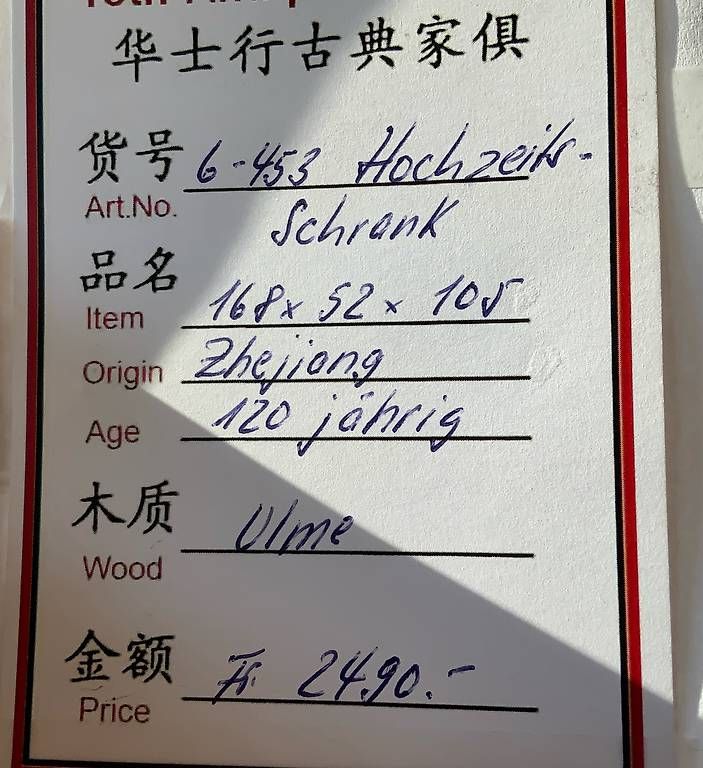 华士行古典家俱
货号 6-453 Hochzeits-
Art.No. Schrank
品名
Item 168x 52x 105
Origin Zhejiang
Age 120 jährig
木质 Ulme
Wood
金额 Fr. 2490.-
Price